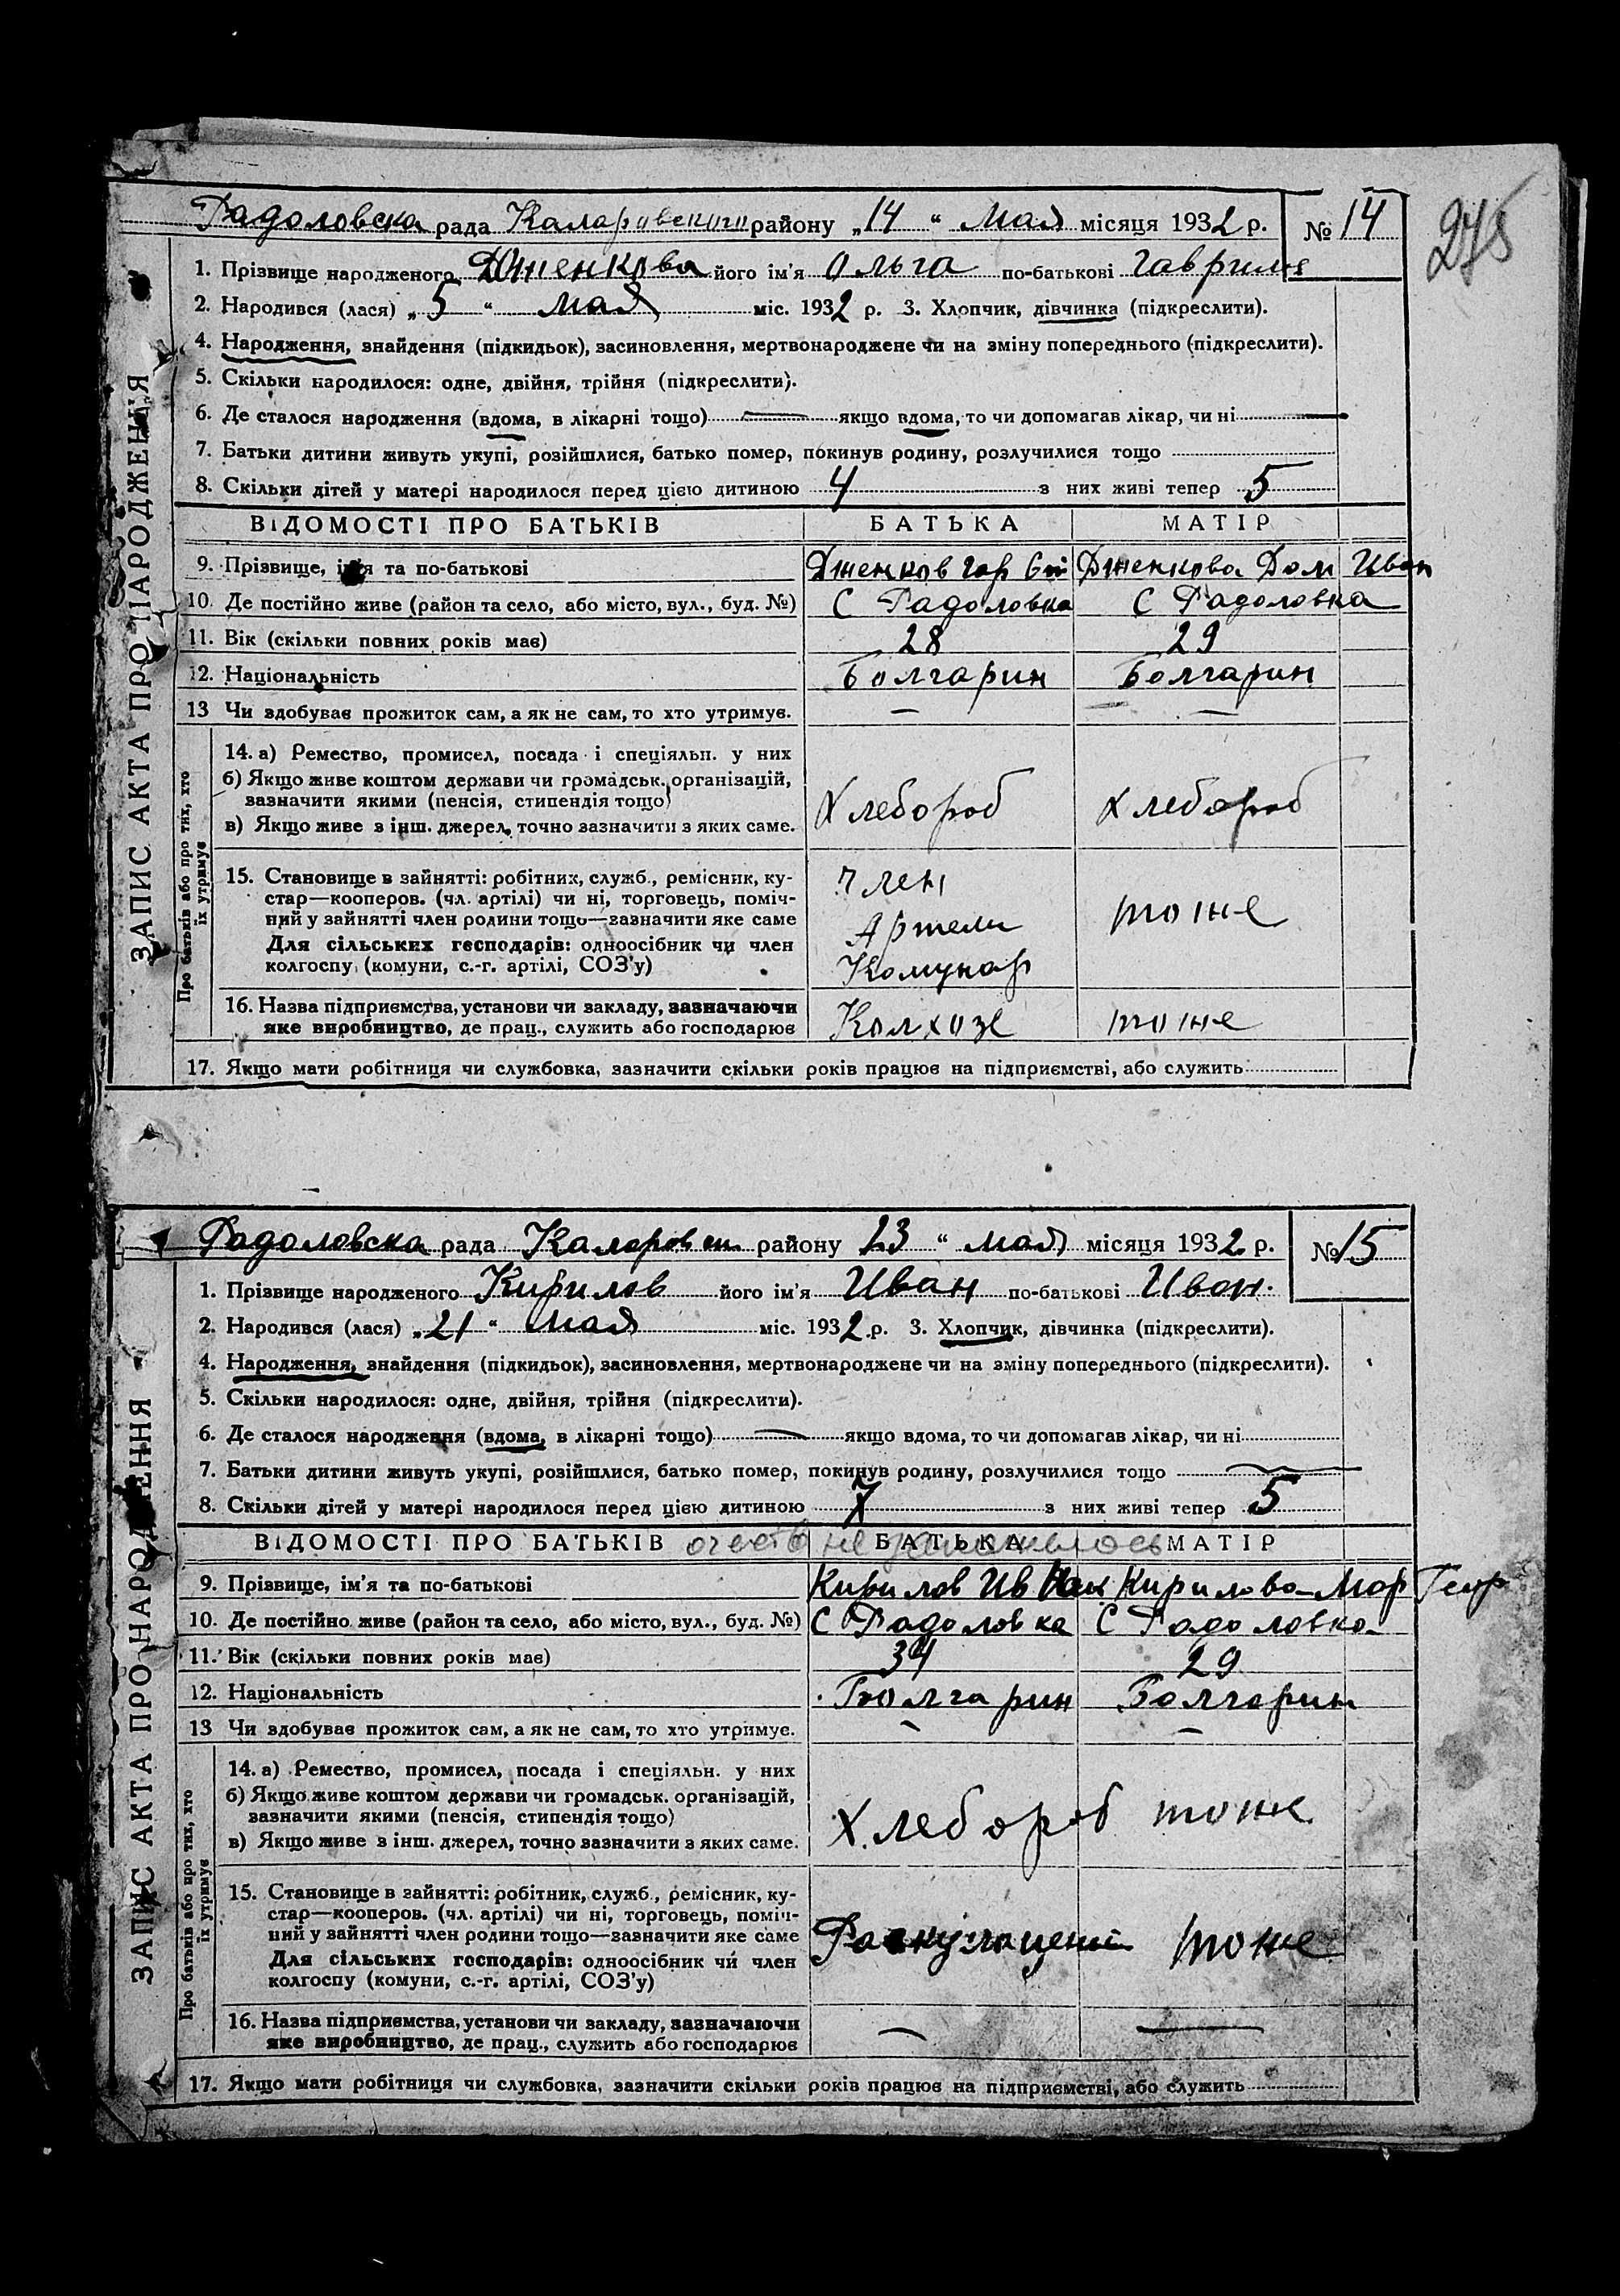 Радоловска рада Каларовского району „14“ Мая місяця 1932 р. № 14
275
1. Прізвище народженого Дженкова його ім'я Ольга по-батькові Гаврил
2. Народився (лася) „5“ мая міс. 1932 р. 3. Хлопчик, дівчинка (підкреслити).
4. Народження, знайдення (підкидьок), засиновлення, мертвонароджене чи на зміну попереднього (підкреслити).
5. Скільки народилося: одне, двійня, трійня (підкреслити).
6. Де сталося народження (вдома, в лікарні тощо) — якщо вдома, то чи допомагав лікар, чи ні —
7. Батьки дитини живуть укупі, розійшлися, батько помер, покинув родину, розлучилися тощо
8. Скільки дітей у матері народилося перед цією дитиною 4 з них живі тепер 5
ВІДОМОСТІ ПРО БАТЬКІВ БАТЬКА МАТІР
9. Прізвище, ім'я та по-батькові Дженков Гар Дженкова Дом Иван
10. Де постійно живе (район та село, або місто, вул., буд. №) С Радоловка С Радоловка
11. Вік (скільки повних років має) 28 29
12. Національність Болгарин Болгарин
13 Чи здобуває прожиток сам, а як не сам, то хто утримує. — —
ЗАПИС АКТА ПРО НАРОДЖЕННЯ
Про батьків або про тих, хто їх утримує
14. а) Ремество, промисел, посада і спеціяльн. у них
б) Якщо живе коштом держави чи громадськ. організацій,
зазначити якими (пенсія, стипендія тощо)
в) Якщо живе з інш. джерел, точно зазначити з яких саме.
Хлебороб Хлебороб
15. Становище в зайнятті: робітних, служб., ремісник, ку-
стар—кооперов. (чл. артілі) чи ні, торговець, поміч-
ний у зайнятті член родини тощо—зазначити яке саме
Для сільських господарів: одноосібник чи член
колгоспу (комуни, с.-г. артілі, СОЗ'у)
член
Артели
Комунар
тоже
16. Назва підприємства, установи чи закладу, зазначаючи
яке виробництво, де прац., служить або господарює
Колхозе тоже
17. Якщо мати робітниця чи службовка, зазначити скільки років працює на підприємстві, або служить
Радоловска рада Каларовск району 23 “ мая місяця 1932 р. № 15
1. Прізвище народженого Кирилов його ім'я Иван по-батькові Иван.
2. Народився (лася) „21“ мая міс. 1932 р. 3. Хлопчик, дівчинка (підкреслити).
4. Народження, знайдення (підкидьок), засиновлення, мертвонароджене чи на зміну попереднього (підкреслити).
5. Скільки народилося: одне, двійня, трійня (підкреслити).
6. Де сталося народження (вдома, в лікарні тощо) — якщо вдома, то чи допомагав лікар, чи ні
7. Батьки дитини живуть укупі, розійшлися, батько помер, покинув родину, розлучилися тощо —
8. Скільки дітей у матері народилося перед цією дитиною 7 з них живі тепер 5
ВІДОМОСТІ ПРО БАТЬКІВ БАТЬКА МАТІР
9. Прізвище, ім'я та по-батькові Кирилов Ив Кирилова Мар Геор
10. Де постійно живе (район та село, або місто, вул., буд. №) С Радоловка С Радоловка
11. Вік (скільки повних років має) 34 29
12. Національність Болгарин Болгарин
13 Чи здобуває прожиток сам, а як не сам, то хто утримує. — —
ЗАПИС АКТА ПРО НАРОДЖЕННЯ
Про батьків або про тих, хто їх утримує
14. а) Ремество, промисел, посада і спеціяльн. у них
б) Якщо живе коштом держави чи громадськ. організацій,
зазначити якими (пенсія, стипендія тощо)
в) Якщо живе з інш. джерел, точно зазначити з яких саме.
Хлебороб тоже
15. Становище в зайнятті: робітник, служб., ремісник, ку-
стар—кооперов. (чл. артілі) чи ні, торговець, поміч-
ний у зайнятті член родини тощо—зазначити яке саме
Для сільських господарів: одноосібник чи член
колгоспу (комуни, с.-г. артілі, СОЗ'у)
Раскулачений тоже
16. Назва підприємства, установи чи закладу, зазначаючи
яке виробництво, де прац., служить або господарює
— —
17. Якщо мати робітниця чи службовка, зазначити скільки років працює на підприємстві, або служить